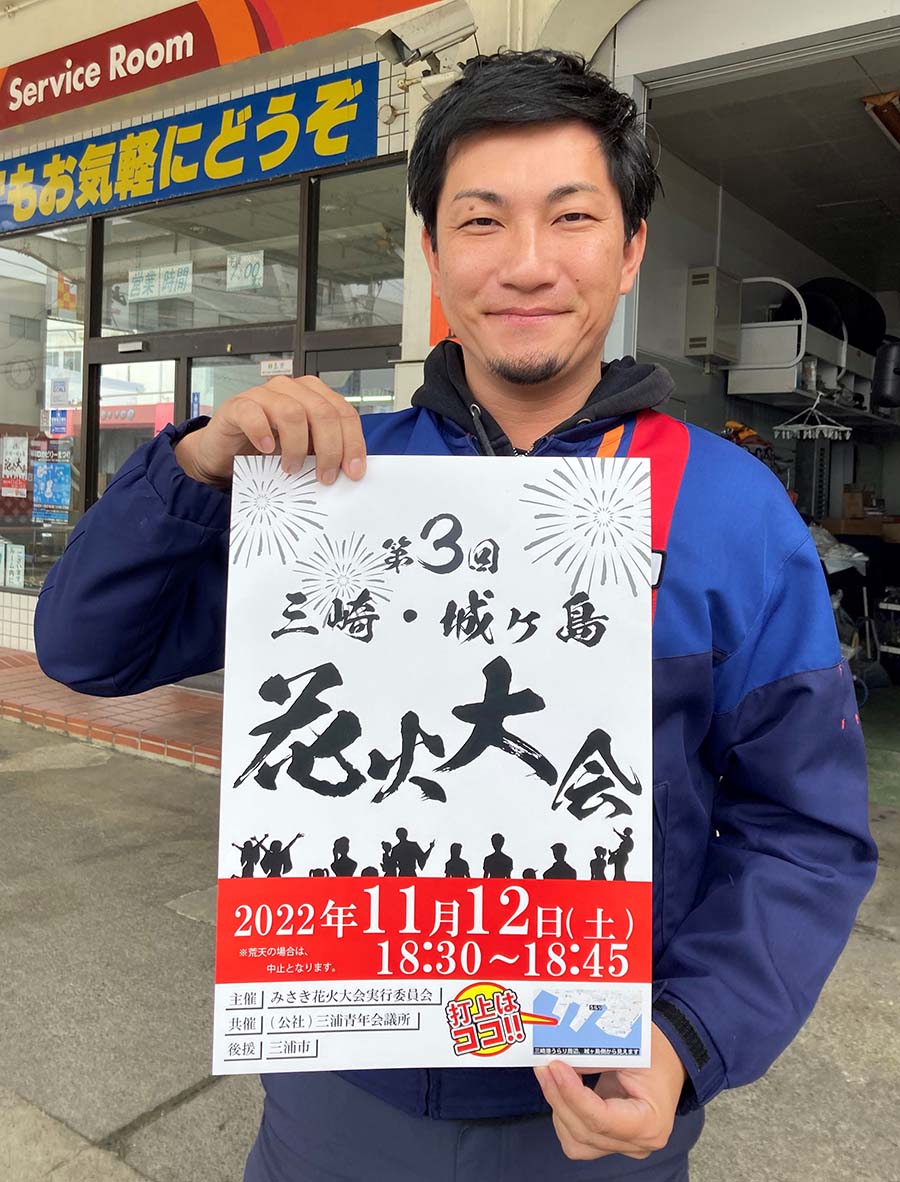 Service Room
もお気軽にどうぞ
営業時間
第3回
三崎・城ヶ島
花火大会
2022年11月12日(土)
※荒天の場合は、
中止となります。
18:30～18:45
主催 みさき花火大会実行委員会
共催 (公社)三浦青年会議所
後援 三浦市
打上は
ココ!!
うらり
三崎港うらり周辺、城ヶ島側から見えます